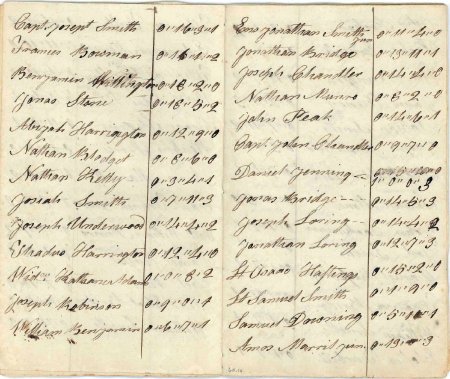 Capt. Joseph Smith 0"16"3"1
Frances Bowman 0"16"1"2
Benjamin Wellington 0"18"2"0
Jonas Stone 0"18"5"2
Abijah Harrington 0"12"9"0
Nathan Blodget 0"8"6"0
Nathan Kelly 0"3"4"1
Josiah Smith 0"7"11"3
Joseph Underwood 0"14"4"2
Thadus Harrington 0"12"4"0
Wid: 0"0"8"2
Joseph Robinson 0"9"0"1
William Benjamin 0"6"7"1
Ens Jonathan Smith jun 0"11"4"0
Jonathan Bridge 0"13"11"1
Joseph Chandler 0"14"4"0
Nathan Munro 0"8"2"0
John Peak 0"14"6"1
Capt. John Chandler 0"9"7"0
Daniel Jenning 0"0"3
Jonas Bridge 0"14"5"3
Joseph Loring 0"14"4"2
Jonathan Loring 0"12"7"3
Lt Isaac Hastings 0"15"2"0
Lt Samuel Smith 0"1"9"0
Samuel Downing 0"5"11"1
Amos Marrit jun. 0"13"3